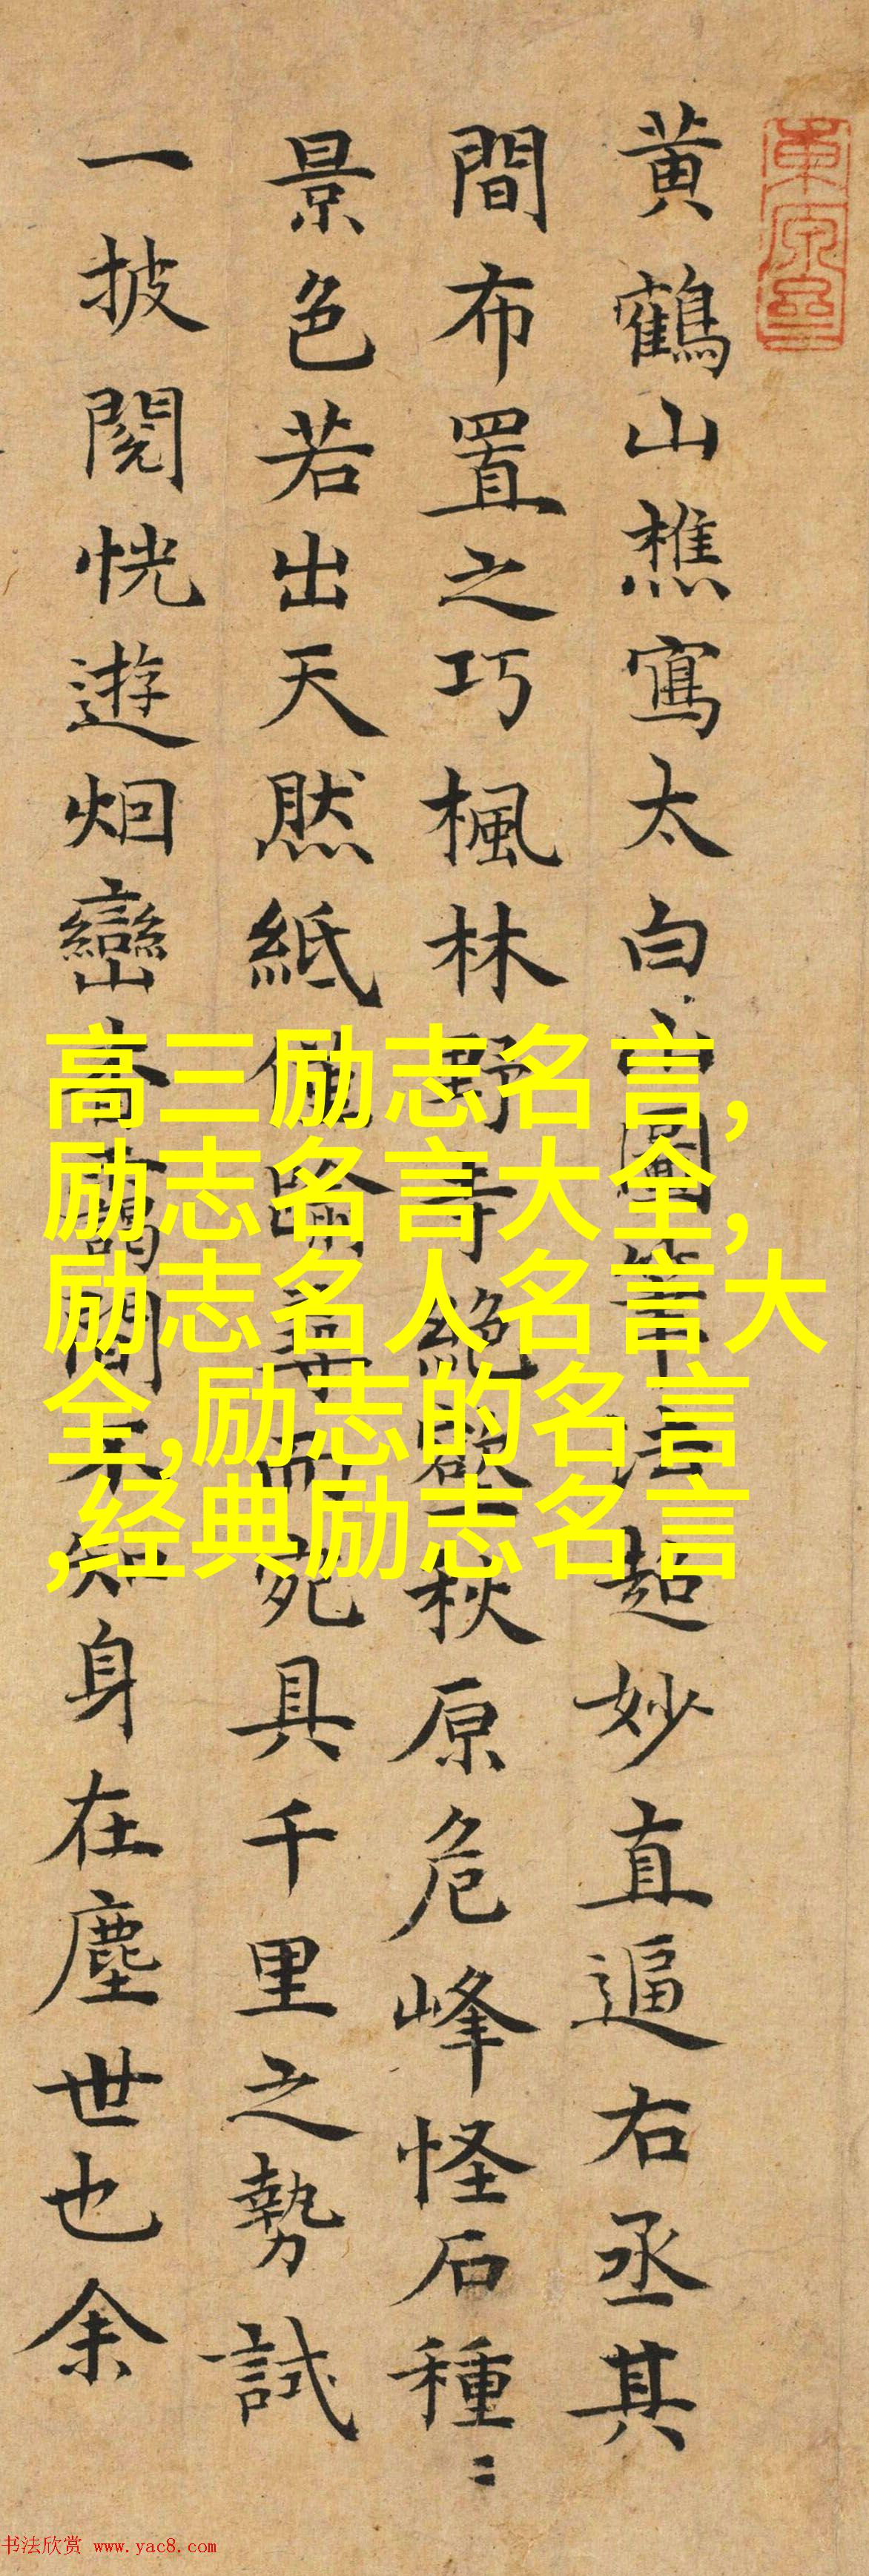 黄鶴山樵寫太白山圖筆法超妙直逼右丞其
間布置之巧楓林野寺絶壑秋原危峰怪石種〻
景色若出天然紙僅踰尋而宛具千里之勢試
一披閱恍遊烟巒杳靄間不知身在塵世也余
高三励志名言,
励志名言大全,
励志名人名言大
全,励志的名言
,经典励志名言
书法欣赏 www.yac8.com